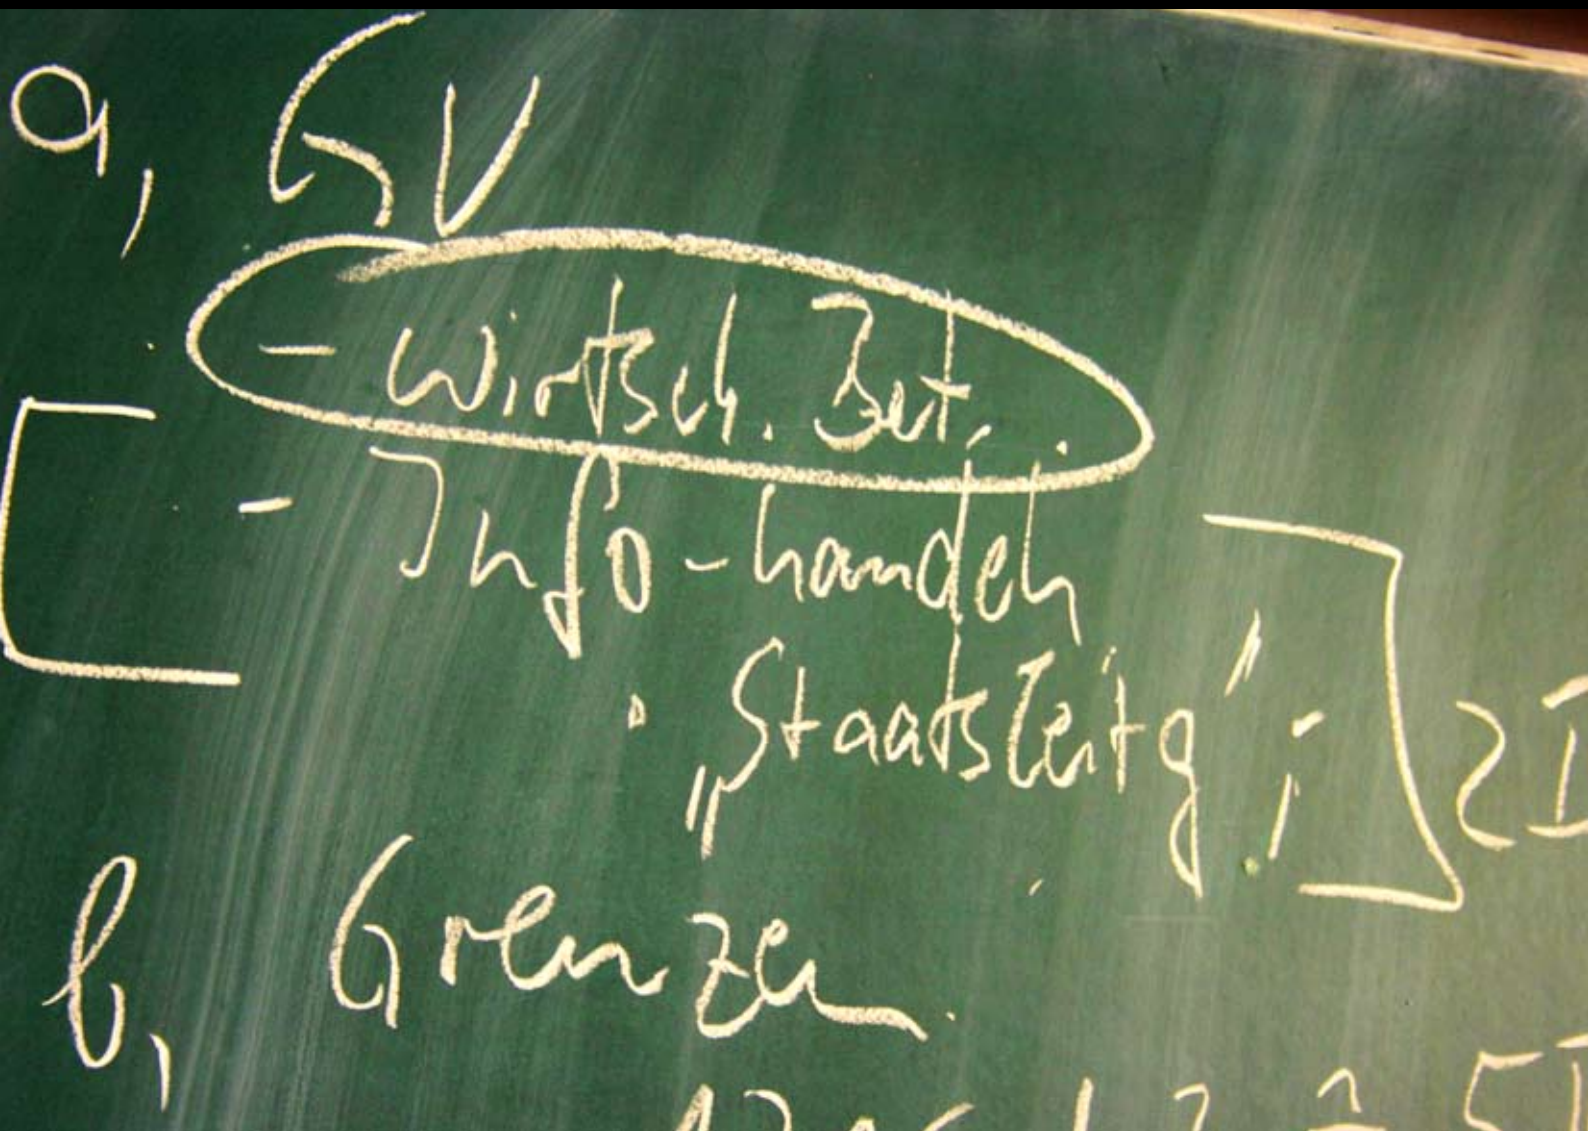 a, GV
- wirtsch. Bet.
- Info-handeln
„Staatsleitg";
b, Grenzen